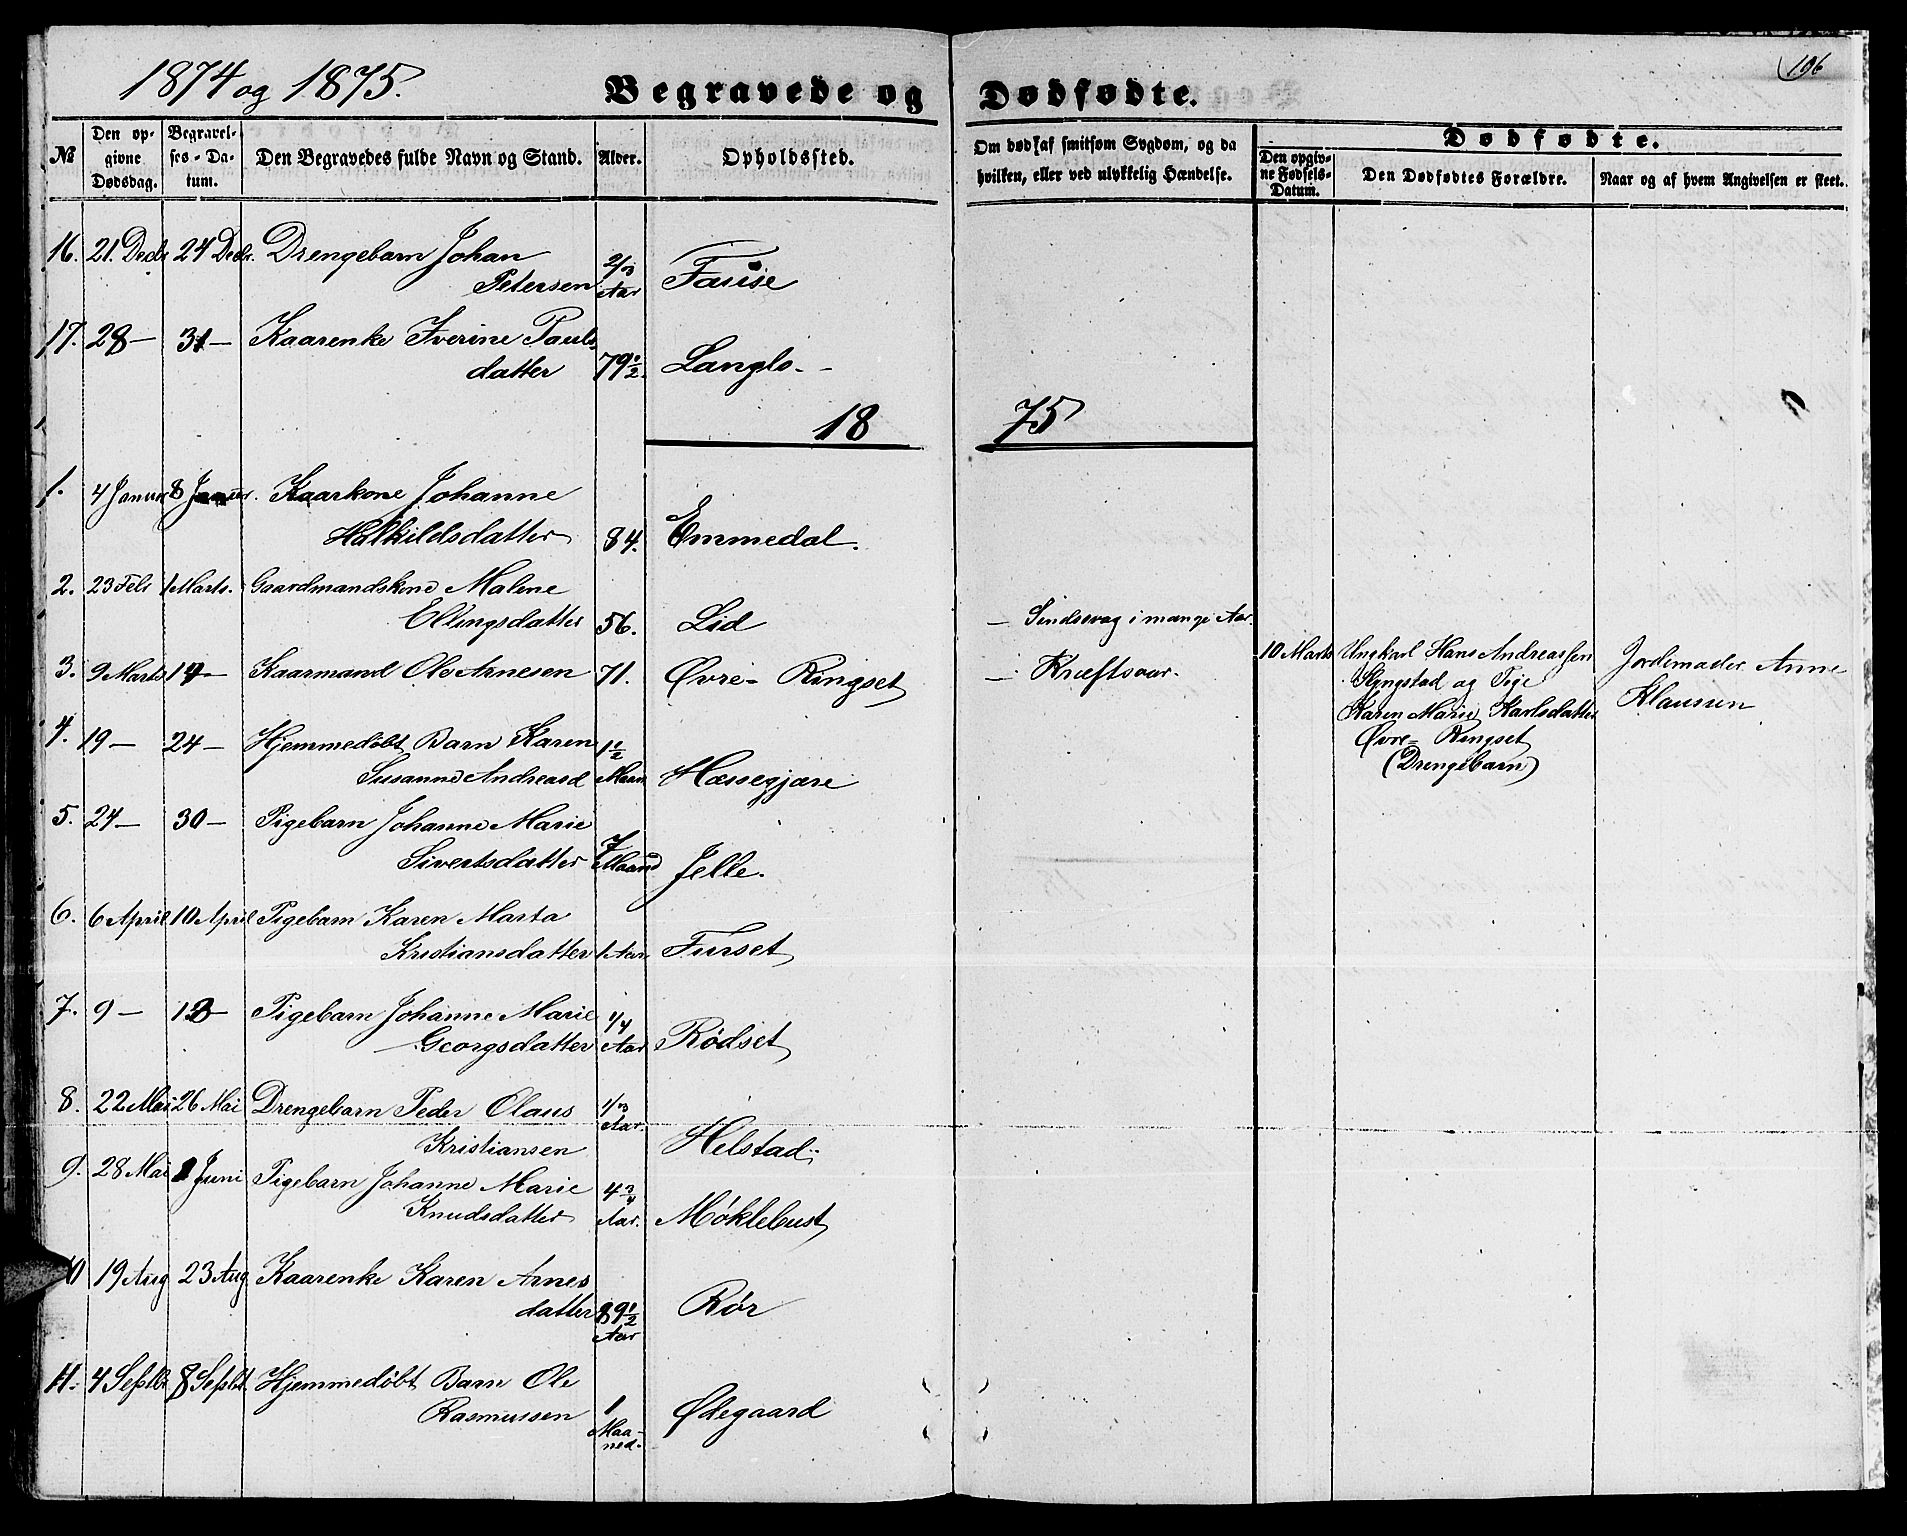 1874 og 1875.
Begravede og Dødfødte.
106
№
Den opgivne Dødsdag.
Begravelses-Datum.
Den Begravedes fulde Navn og Stand.
Alder.
Opholdssted.
Om død af smitsom Sygdom, og da hvilken, eller ved ulykkelig Hændelse.
Dødfødte.
Den opgivne Fødsels-Datum.
Den Dødfødtes Forældre.
Naar og af hvem Angivelsen er skeet.
16. 21. Decbr 24 Decbr. Drengebarn Johan
Petersen 2/3 Aar Fause
17. 28 — 31 — Kaarenke Iverine Pauls-
datter 79 1/2. Langlo. —
1875
1. 4 Januar 8 Januar. Kaarkone Johanne
Halkildsdatter 84. Emmedal.
2. 23 Feb 1 Marts. Gaardmandskone Malene
Ellingsdatter 56. Lid — Sindssvag i mange Aar.
3. 9 Marts 14 — Kaarmand Ole Arnesen 71. Øvre- Ringset — Kræftsaar.
10 Marts Ungkarl Hans Andreassen
Slyngstad og Pige
Karen Marie Karlsdatter
Øvre- Ringset
(Drengebarn)
Jordemoder Anne
Klaussen
4. 19 — 24 — Hjemmedøbt Barn Karen
Susanne Andreasd 1 1/2 Maan Hæssegjære
5. 24 — 30 — Pigebarn Johanne Marie
Sivertsdatter 7 Maaned Jelle.
6. 6 April 10 April Pigebarn Karen Marta
Kristiansdatter 1 Aar Furset
7. 9 — 13 — Pigebarn Johanne Marie
Georgsdatter 1/4 Aar Rødset
8. 22 Mai 26 Mai Drengebarn Peder Olaus
Kristiansen 1/3 Aar. Helstad
9. 28 Mai 1 Juni Pigebarn Johanne Marie
Knudsdatter 4 3/4 Aar. Møklebust
10 19 Aug 23 Aug Kaarenke Karen Arnes
datter 89 1/2 Aar Rør
11. 4 Septbr 8 Septbr. Hjemmedøbt Barn Ole
Rasmussen 1 Maa-
ned. Ødegaard